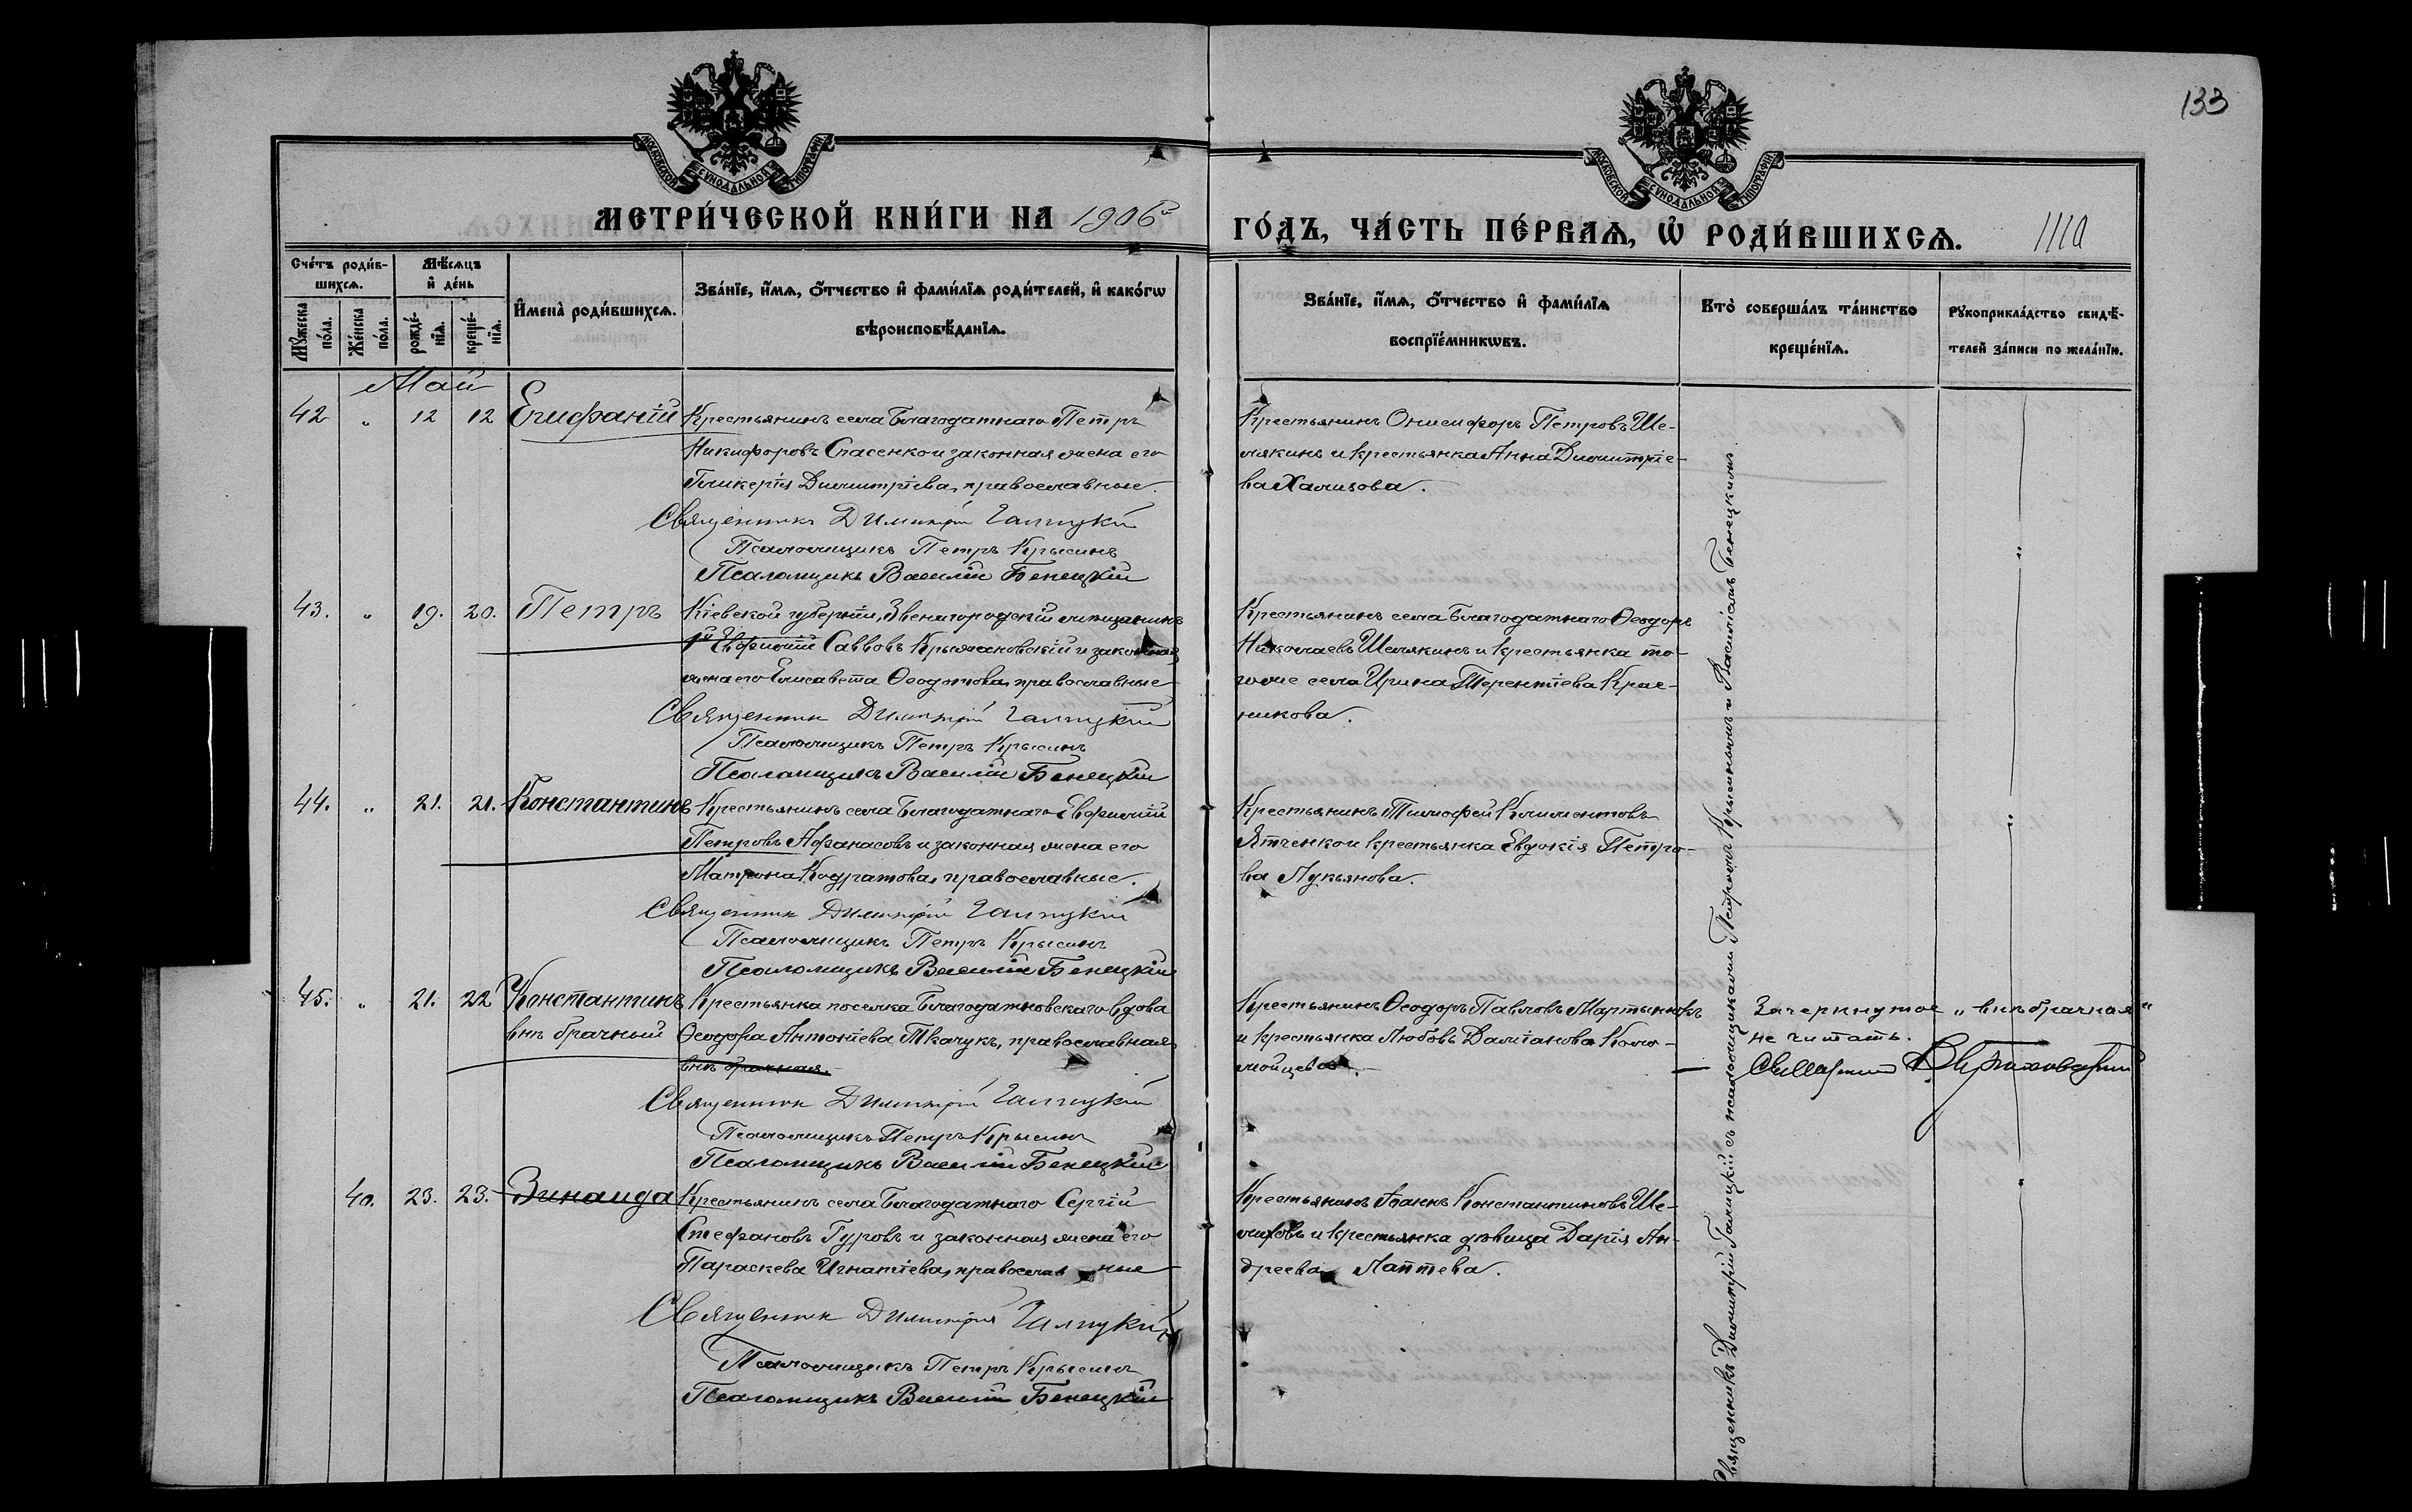 133
МОСКОВСКОЙ СѴНОДАЛЬНОЙ ТИПОГРАФІИ
МОСКОВСКОЙ СѴНОДАЛЬНОЙ ТИПОГРАФІИ
МЕТРИ́ЧЕСКОЙ КНИ́ГИ НА 1906 г
ГО́ДЪ, ЧА́СТЬ ПЕ́РВАѦ, Ѡ РОДИ́ВШИХСѦ.
Сче́тъ роди́в-
шихсѧ.
Мѣ́сѧцъ
и де́нь
Мꙋ́жеска по́ла.
Же́нска по́ла.
рожде́-нїѧ.
креще́-нїѧ.
Имена̀ роди́вшихсѧ.
Зва́нїе, и́мѧ, ѻ́тчество и фами́лїѧ роди́телей, и како́гѡ
вѣроисповѣ́данїѧ.
Зва́нїе, и́мѧ, ѻ́тчество и фами́лїѧ
воспрїе́мникѡвъ.
Кто̀ соверша́лъ та́инство
креще́нїѧ.
Рꙋкоприкла́дство свидѣ́-
телей за́писи по жела́нїю.
Май
42 " 12 12 Епифаній Крестьянинъ села Благодатнаго Петръ
Никифоровъ Спасенко и законная жена его
Гликерія Димитріева, православные.
Священникъ Димитрій Галицкій
Псаломщикъ Петръ Крысинъ
Псаломщикъ Василій Бенецкій
Крестьянинъ Онисифоръ Петровъ Ше-
мякинъ и крестьянка Анна Димитріе-
ва Хализова.
43. " 19. 20. Петръ Кіевской губерніи, Звенигородскій мѣщанинъ
Евфимій Саввовъ Крыжановскій и законная
жена его Елисавета Ѳеодотова, православные
Священник Димитрій Галицкій
Псаломщикъ Петръ Крысинъ
Псаломщикъ Василій Бенецкій
Крестьянинъ села Благодатнаго Ѳеодоръ
Николаевъ Шемякинъ и крестьянка то-
гоже села Ирина Терентіева Крас-
никова.
44. " 21. 21. Константинъ Крестьянинъ села Благодатнаго Евфимій
Петровъ Афанасовъ и законная жена его
Матрона Кодратова, православные.
Священник Димитрій Галицкій
Псаломщикъ Петръ Крысинъ
Псаломщикъ Василій Бенецкій
Крестьянинъ Тимофей Климентовъ
Ятченко и крестьянка Евдокія Петро-
ва Лукьянова.
45. " 21. 22 Константинъ Крестьянка поселка Благодатновскаго вдова
внѣ брачный Ѳеодора Антоніева Ткачукъ, православная
внѣ брачная.
Священник Димитрій Галицкій
Псаломщикъ Петръ Крысинъ
Псаломщикъ Василій Бенецкій
Крестьянинъ Ѳеодоръ Павловъ Мартынюкъ
и крестьянка Любовь Даміанова Коло-
мойцева.
Зачеркнутое „внѣбрачная“
не читать.
40. 23. 23. Зинаида Крестьянинъ села Благодатнаго Сергій
Стефановъ Гуровъ и законная жена его
Параскева Игнатіева, православные
Священник Димитрій Галицкій
Псаломщикъ Петръ Крысинъ
Псаломщикъ Василій Бенецкій
Крестьянинъ Іоаннъ Константиновъ Ше-
лиховъ и крестьянка дѣвица Дарія Ан-
дреева Лаптева.
Священникъ Димитрій Галицкій съ псаломщиками Петромъ Крысинымъ и Василіемъ Бенецкимъ